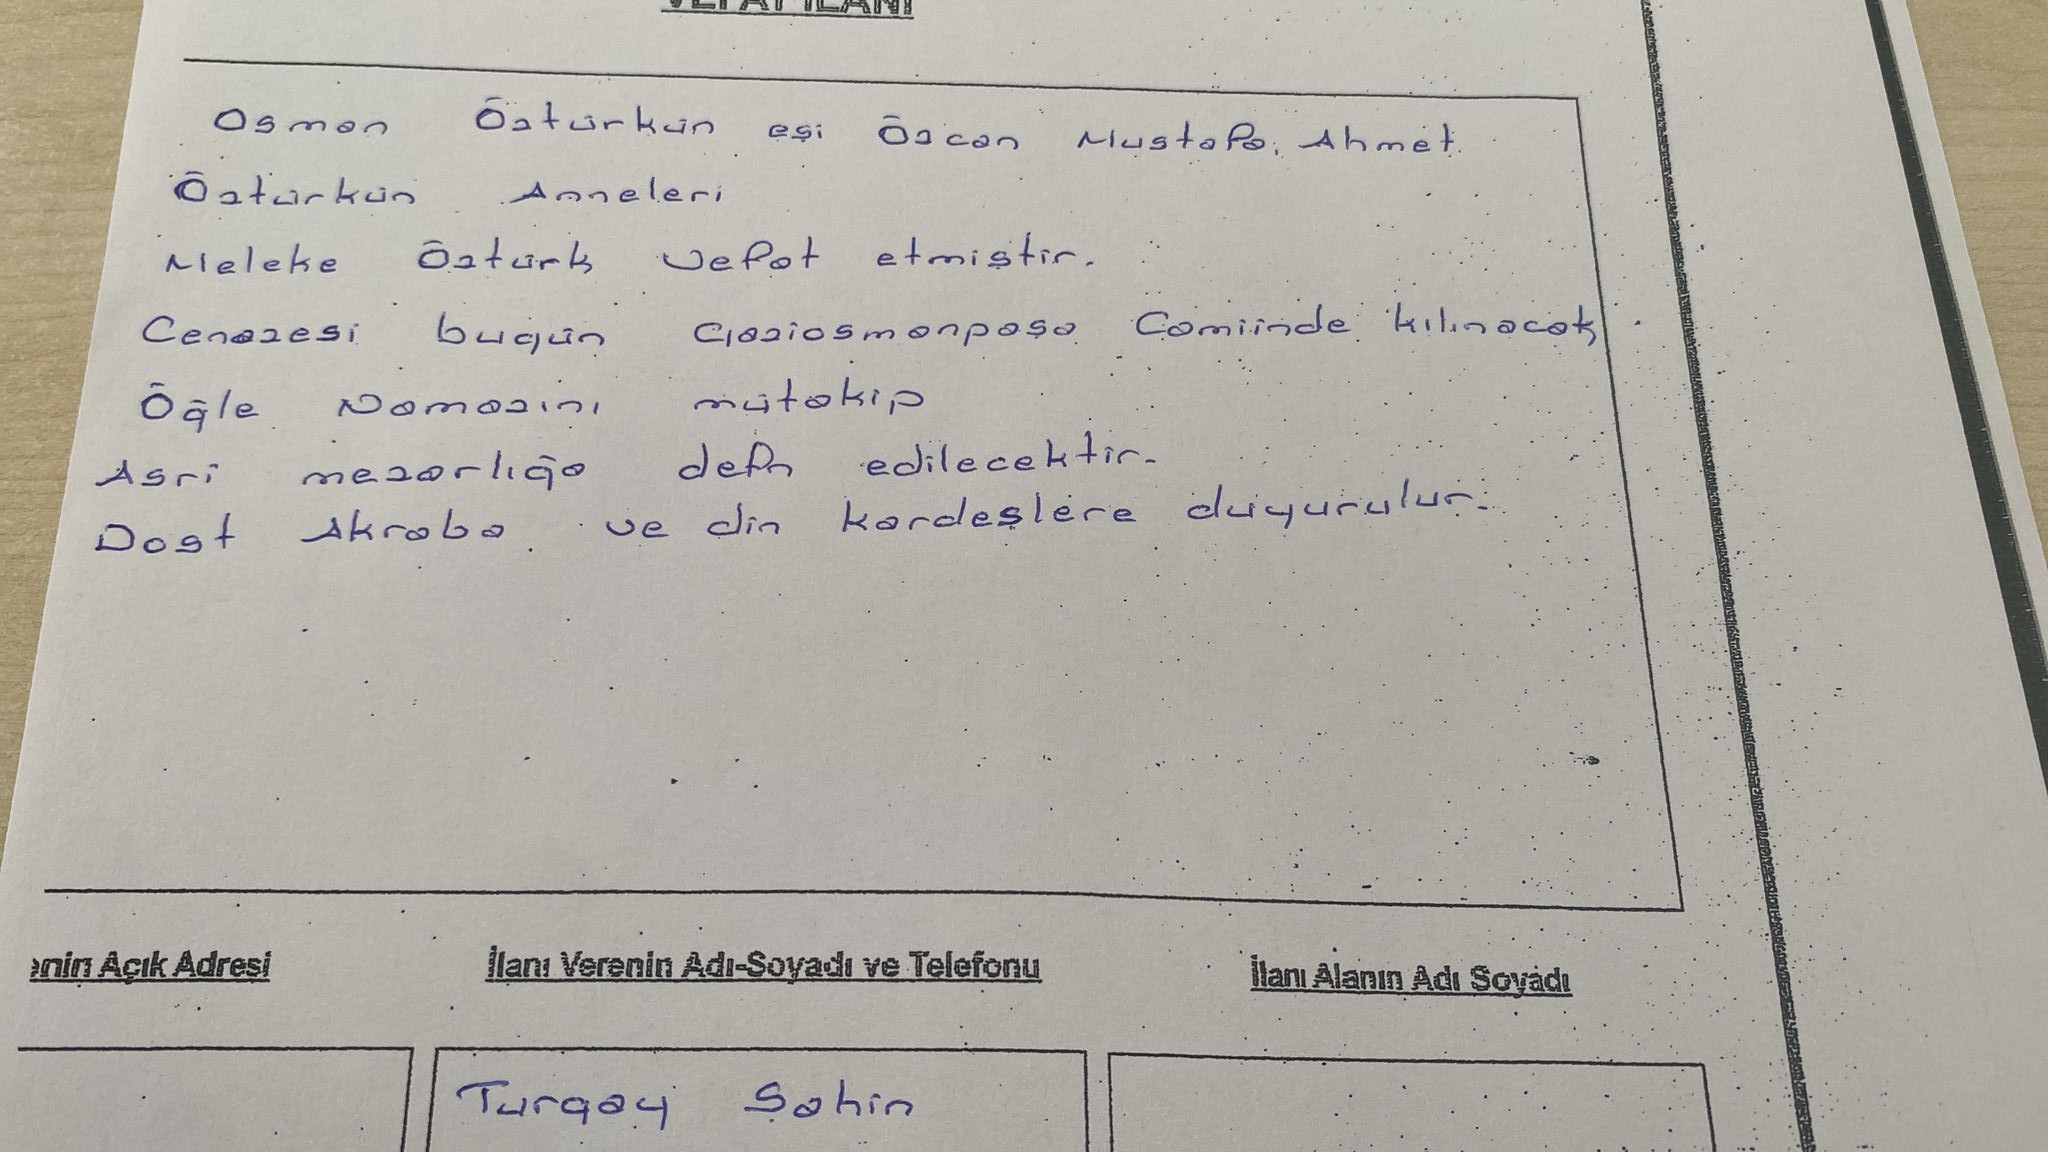 VEFAT İLANI
Osman Öztürkün eşi Özcan Mustafa, Ahmet.
Öztürkün Anneleri
Meleke Öztürk vefat etmiştir.
Cenazesi bugün Gaziosmanpaşa Camiinde kılınacak
Öğle Namazını mütakip
Asri mezarlığa defn edilecektir.
Dost Akraba ve din kardeşlere duyurulur.
Açık Adresi
İlanı Verenin Adı-Soyadı ve Telefonu
İlanı Alanın Adı Soyadı
Turgay Şahin